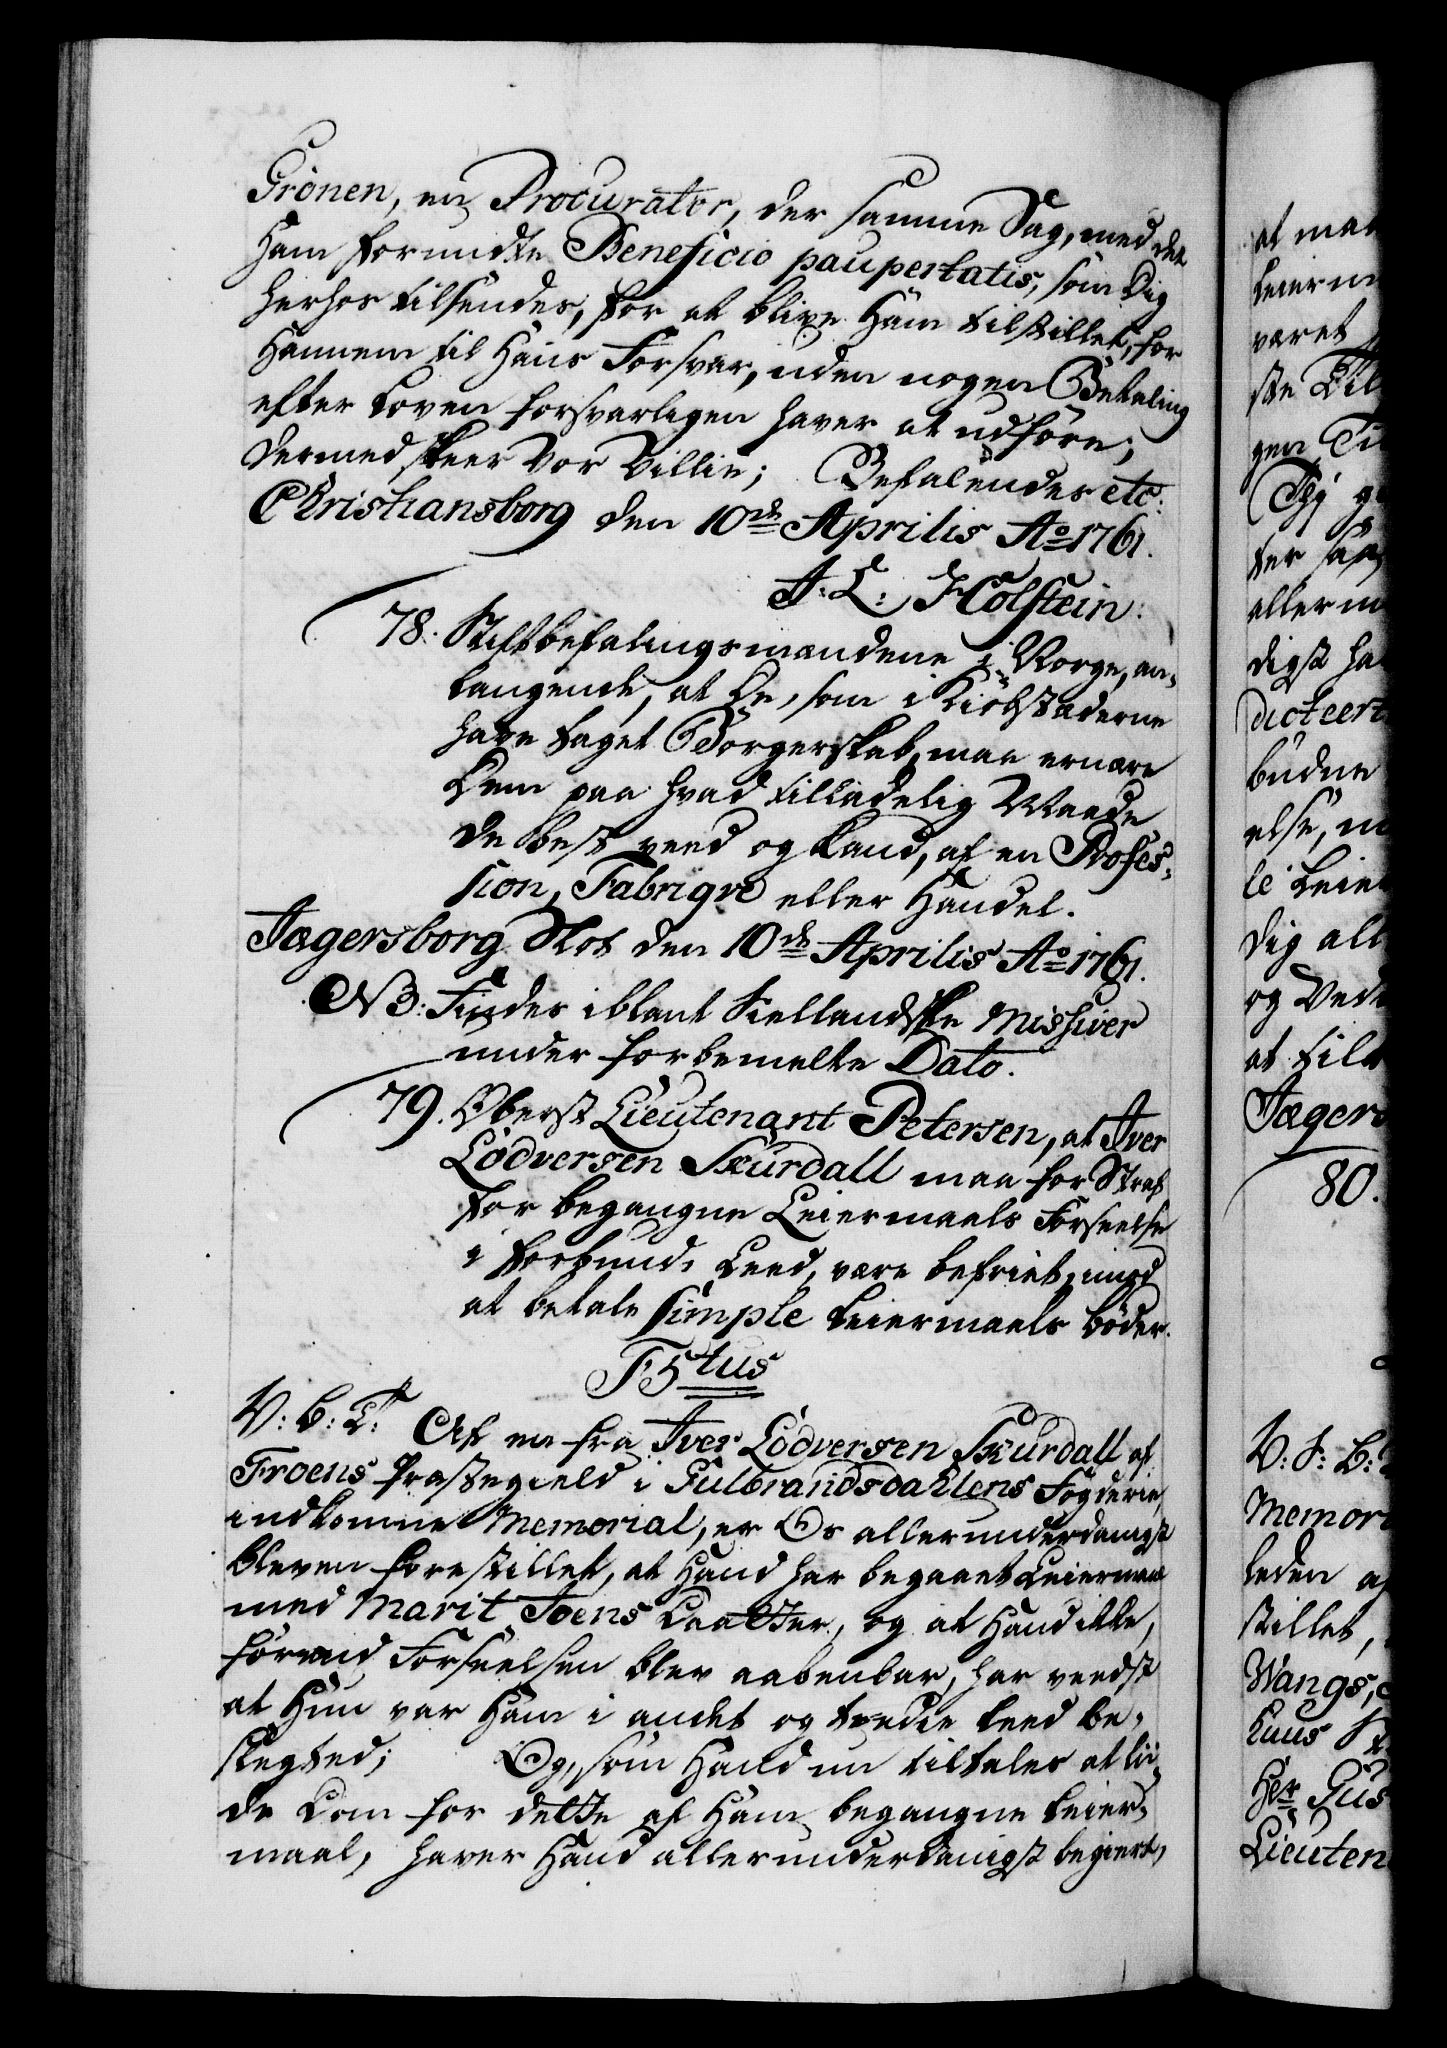 Grönen, en Procurator, der samme Sag, med det
Ham forundte Beneficio paupertatis, som Dig
herhos tilsendes, for at blive Ham tilstillet, for
Hannem til Hans Forsvar, uden nogen Betaling
efter Loven forsvarligen haver at udföre;
dermed skeer Vor Villie; Befalendes etc:
Christiansborg den 10de Aprilis Ao 1761.
J: L: Holstein:
78. Stiftbefalingsmændene i Norge, an-
langende, at De, som i Kiöbstæderne
have taget Borgerskab, maa ernære
Dem paa hvad tilladelig Maade
de best veed og kand, af en Profes-
sion, Fabrique eller Handel.
Jægersborg Slot den 10de Aprilis Ao 1761.
NB: Findes iblant Siellandske Missiver
under forbemelte Dato.
79. Oberst Lieutenant Petersen, at Iver
Lödversen Skurdall maa for Straf
for begangne Leiermaals Forseelse
i forbund: Leed, være befriet, imod
at betale simple Leiermaals böder.
F5tus
V: G: T: Af en fra Iver Lödversen Skurdall af
Froens Præstegield i Gulbrandsdahlens Fögderie,
indkomne Memorial, er Os allerunderdanigst
bleven forestillet, at Hand har begaaet Leiermaal
med Marit Joens Daatter, og at Hand ikke,
förend Forseelsen blev aabenbar, har vidst
at Hun var Ham i andet og tredie Leed be-
slegted; Og, som Hand nu tiltales at lii-
de Dom for dette af Ham begangne Leier-
maal, haver Hand allerunderdanigst begiert,
at maa
Leierm
været
ste Til
gen Ti
Thj g
ter saa
allerm
digst ha
dicteert
budne
else, m
le Leie
Dig all
og Ved
at til
Jægers
80.
Memori
leden a
stillet,
Wangs,
huus St
Her Gus
Lieuten